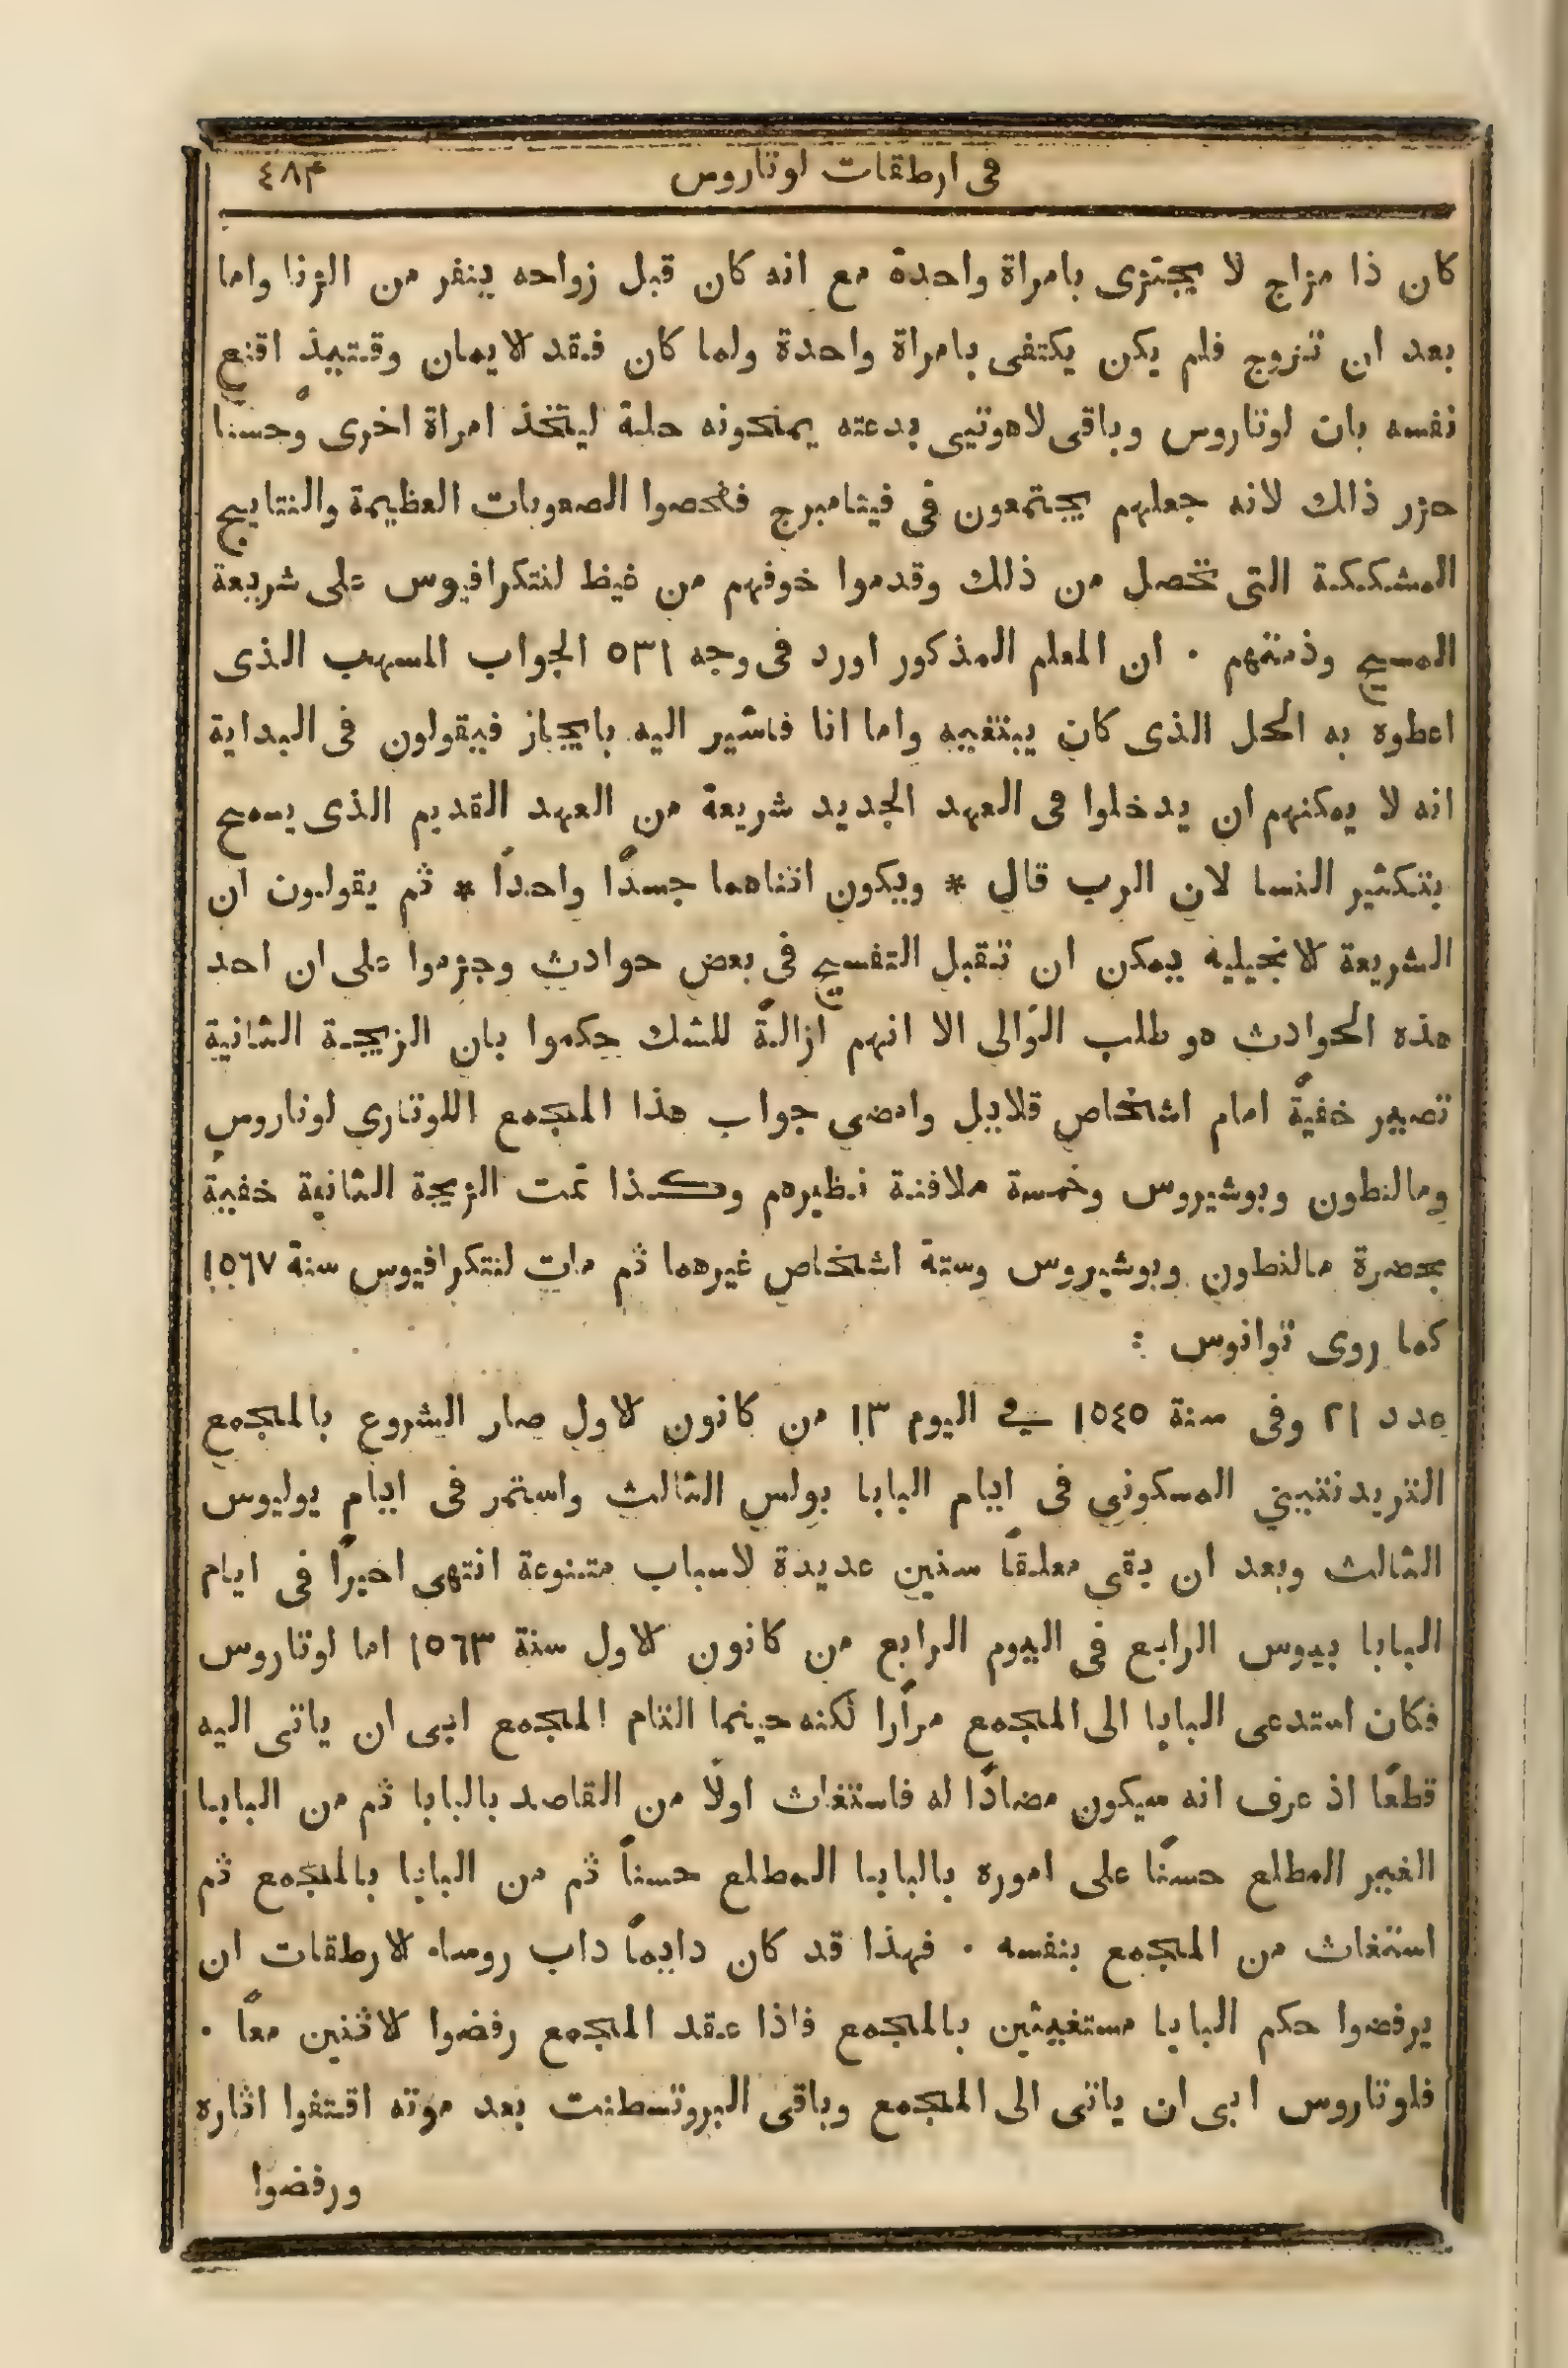 فى ارطقات لوتاروس ٤٨٣
كان ذا مزاج لا يجتزى بامراة واحدة مع انه كان قبل زواحه ينفر من الزنا واما
بعد ان تزوج فلم يكن يكتفى بامراة واحدة ولما كان فقد لايمان وقتيذ اقنع
نفسه بان لوتاروس وباقى لاهوتيى بدعته يمنحونه حلة ليتخذ امراة اخرى وحسنًا
حزر ذالك لانه جعلهم يجتمعون فى فيتامبرج فنحصوا الصعوبات العظيمة والنتايج
المشككة التى تحصل من ذلك وقدموا خوفهم من غيظ لنتكرافيوس على شريعة
المسيح وذمتهم ٠ ان المعلم المذكور اورد فى وجه ٥٣١ الجواب المسهب الذى
اعطوه به الحل الذى كان يبتغيه واما انا فاشير اليه بايجاز فيقولون فى البداية
انه لا يمكنهم ان يدخلوا فى العهد الجديد شريعة من العهد القديم الذى يسمح
بتكثير النسا لان الرب قال * ويكون اثناهما جسدًا واحدًا * ثم يقولون ان
الشريعة لانجيليه يمكن ان تقبل التفسيح فى بعض حوادث وجزموا على ان احد
هذه الحوادث هو طلب الوالى الا انهم ازالةً للشك حكموا بان الزيجة الثانية
تصير خفيةً امام اشخاص قلايل وامضى جواب هذا المجمع اللوتارى لوتاروس
ومالنطون وبوشيروس وخمسة ملافنة نظيرهم وهكذا تمت الزيجة الثانية خفية
بحضرة مالنطون وبوشيروس وستة اشخاص غيرهما ثم مات لنتكرافيوس سنة ١٥٦٧
كما روى توانوس :
عدد ٢١ وفى سنة ١٥٤٥ فى اليوم ١٣ من كانون لاول صار الشروع بالمجمع
التريدنتينى المسكونى فى ايام البابا بولس الثالث واستمر فى ايام يوليوس
الثالث وبعد ان بقى معلقًا سنين عديدة لاسباب متنوعة انتهى اخيرًا فى ايام
البابا بيوس الرابع فى اليوم الرابع من كانون لاول سنة ١٥٦٣ اما لوتاروس
فكان استدعى البابا الى المجمع مرارًا لكنه حينما التام المجمع ابى ان ياتى اليه
قطعًا اذ عرف انه سيكون مضادًا له فاستغاث اولًا من القاصد بالبابا ثم من البابا
الغير المطلع حسنًا على اموره بالبابا المطلع حسناً ثم من البابا بالمجمع ثم
استغاث من المجمع بنفسه ٠ فهذا قد كان دايمًا داب روساء لارطقات ان
يرفضوا حكم البابا مستغيثين بالمجمع فاذا عقد المجمع رفضوا لاثنين معاً ٠
فلوتاروس ابى ان ياتى الى المجمع وباقى البروتسطنت بعد موته اقتفوا اثاره
ورفضوا